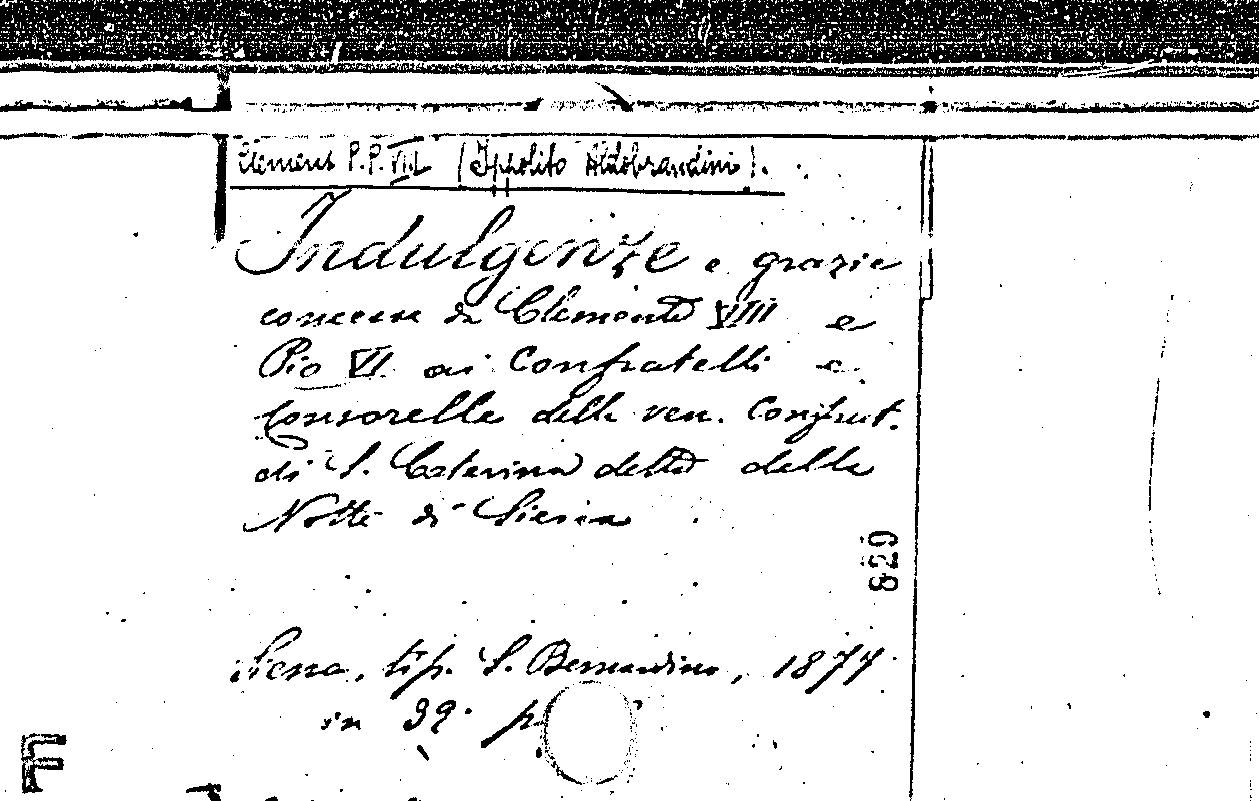 Clemens P.P. VIII (Ippolito Aldobrandini).
Indulgenze e grazie
concesse da Clemente VIII e
Pio VI ai Confratelli e
Consorelle della ven. Confrat.
di S. Caterina detta della
Notte di Siena
829
Siena, tip. S. Bernardino, 1877
in 32° p
F